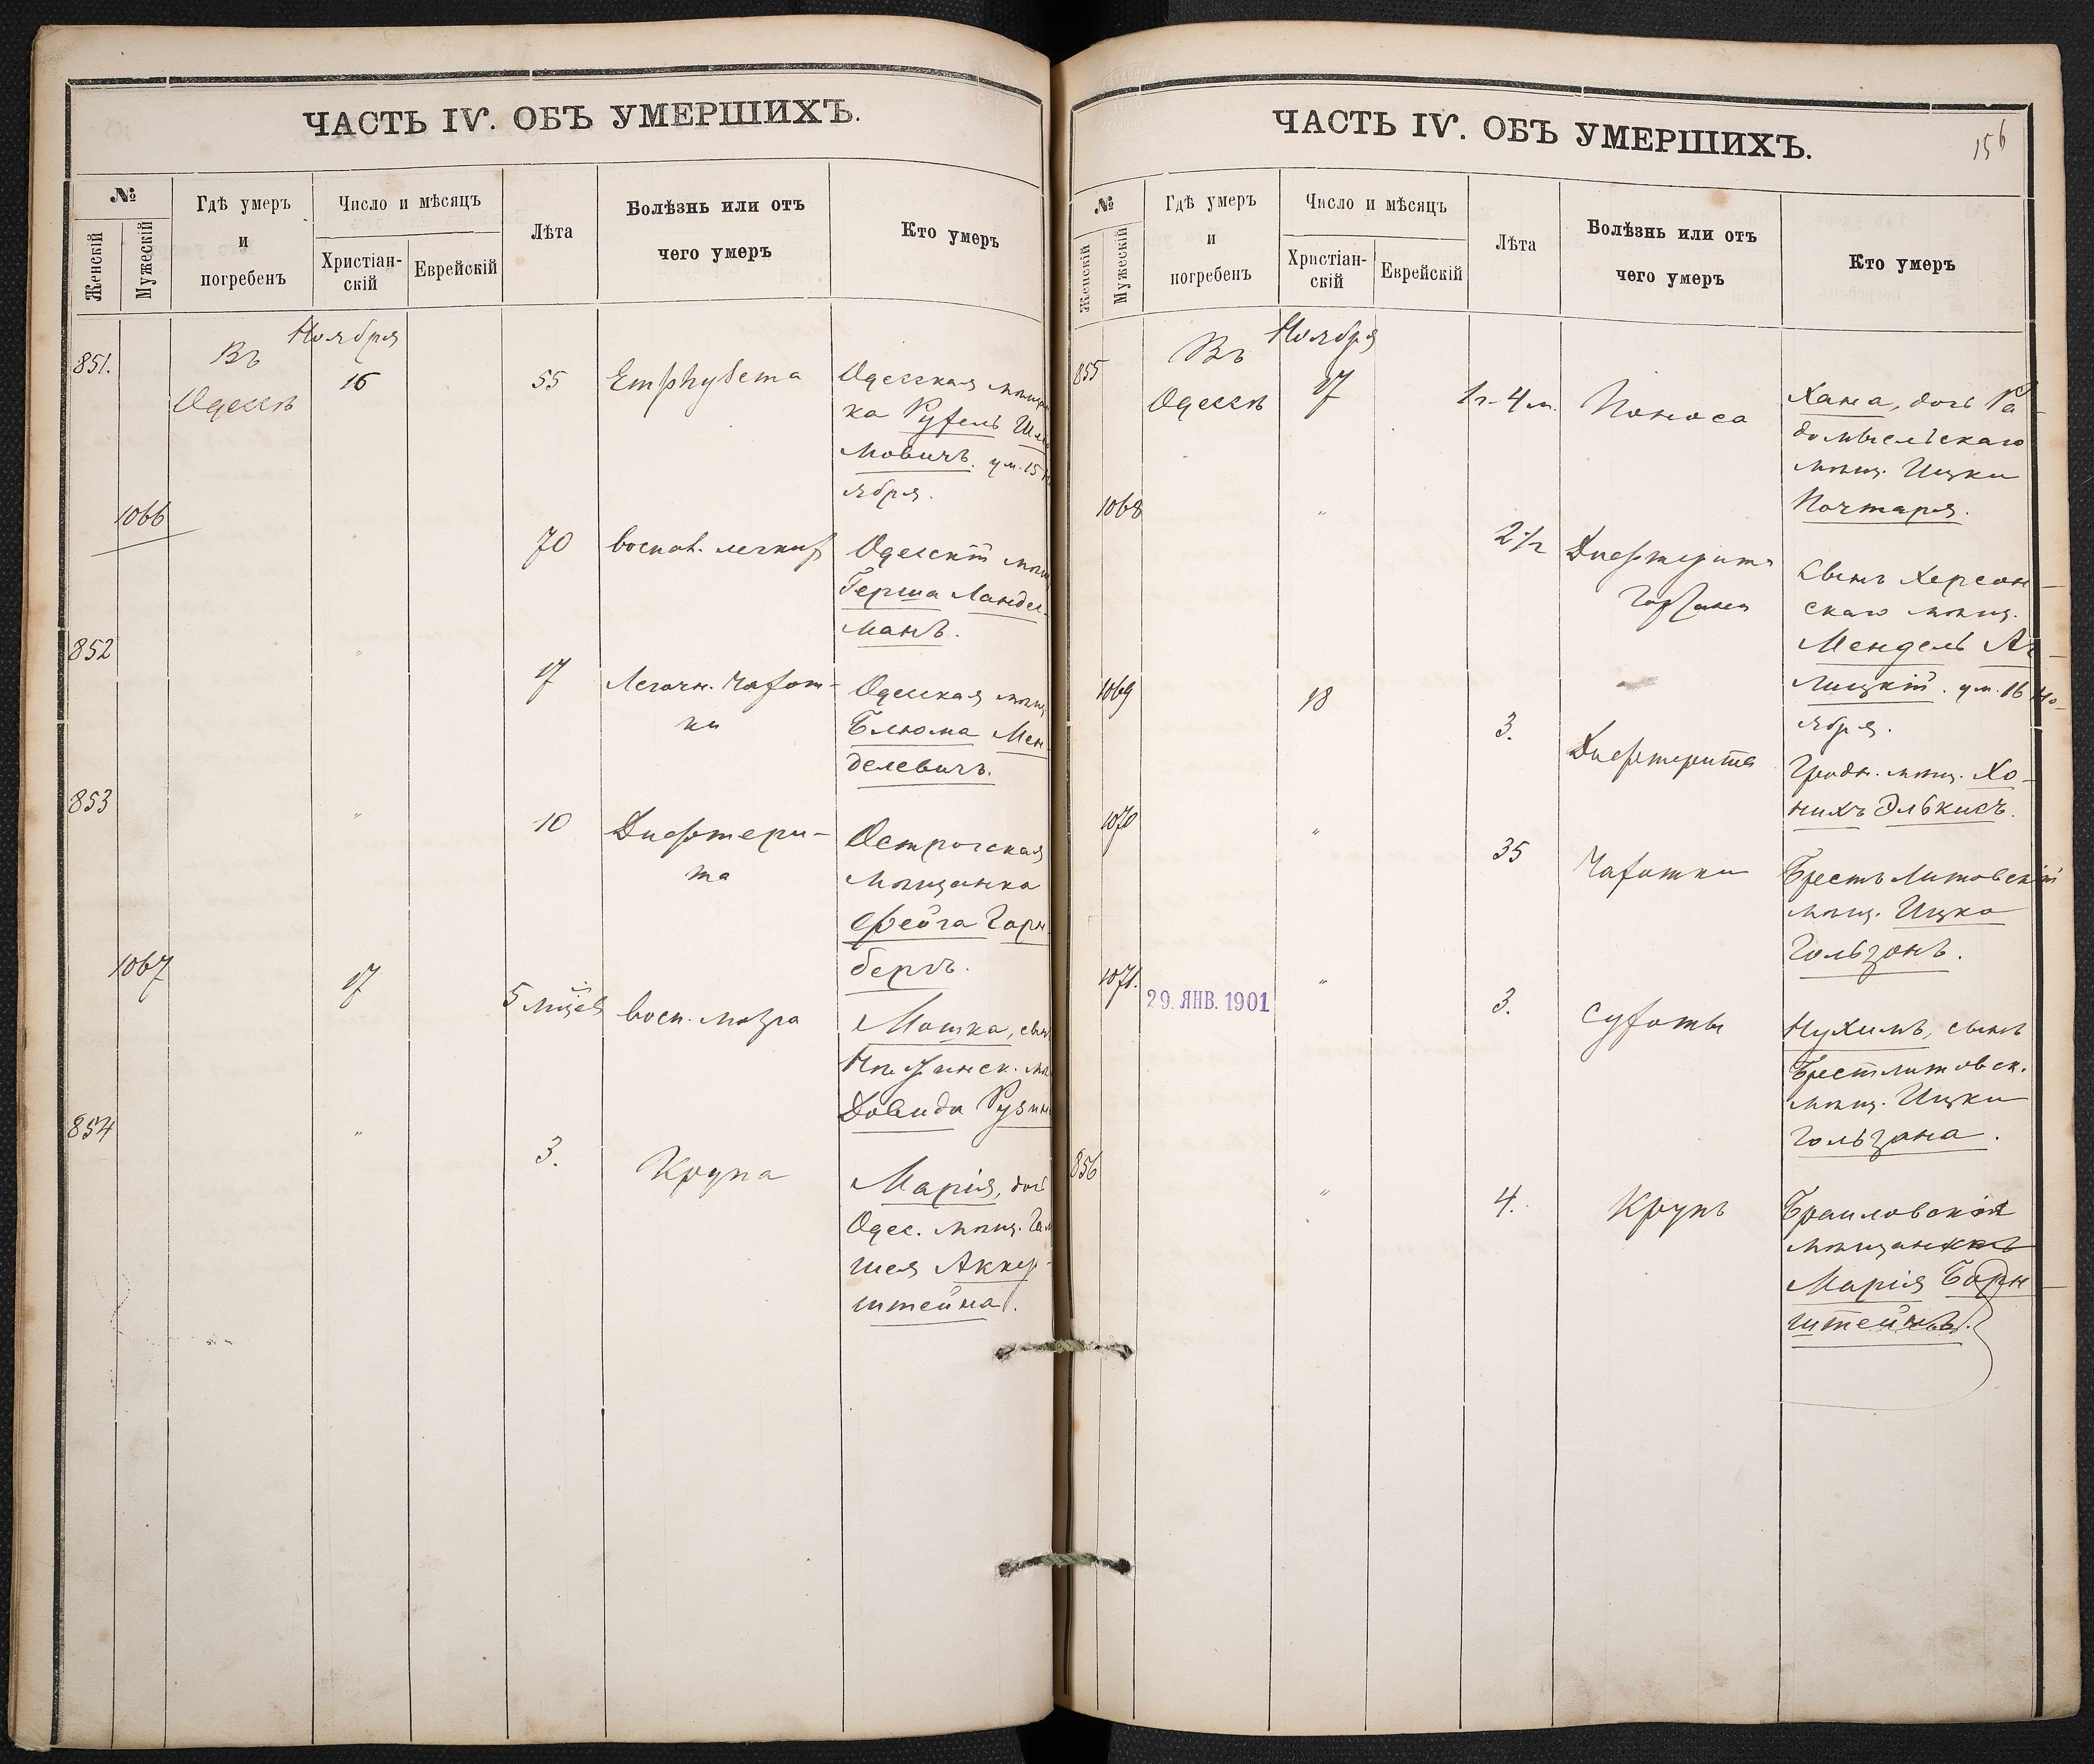 ЧАСТЬ IV. ОБЪ УМЕРШИХЪ.
№
Женскій
Мужескій
Гдѣ умеръ
и
погребенъ
Число и мѣсяцъ
Христіан-
скій
Еврейскій
Лѣта
Болѣзнь или отъ
чего умеръ
Кто умеръ
851.
Въ
Одессѣ
Ноября
16
55
Emphysema
Одесская
ка Руфель
мовичъ. ум. 15
ября.
1066
"
70
воспал. легкихъ
Одесскій
Герша Ландес-
манъ.
852
"
17
Легочн. чахот-
ки
Одесская мѣщ.
Блюма Мен-
делевичъ.
853
"
10
Дифтери-
та
Острогская
мѣщанка
Фейга Горн-
бергъ.
1067
17
5 мѣсяц.
восп. мозга
Мошка, сынъ
Довида
854
"
3.
Крупа
Марія, дочь
Одес. мѣщ.
шея Аккер-
штейна.
ЧАСТЬ IV. ОБЪ УМЕРШИХЪ.
156
№
Женскій
Мужескій
Гдѣ умеръ
и
погребенъ
Число и мѣсяцъ
Христіан-
скій
Еврейскій
Лѣта
Болѣзнь или отъ
чего умеръ
Кто умеръ
855
Въ
Одессѣ
Ноября
17
1 г. 4 м.
Поноса
Хана, дочь Ра-
домысльскаго
мѣщ. Ицки
Почтаря.
1068
"
2 1/2
Дифтерита
гортани
Сынъ Херсон-
скаго мѣщ.
Мендель
лицкій. ум. 16 Но-
ября.
1069
18
3.
Дифтерита
Гродн. мѣщ. Хо-
нихъ Элькисъ.
1070
"
35
Чахотки
Брестъ Литовскій
мѣщ. Ицко
Гользонъ.
1071.
29. ЯНВ. 1901
"
3.
Сухоты
Нухимъ, сынъ
Брестлитовск.
мѣщ. Ицки
Гользона.
856
"
4.
Крупъ
Браиловскія
Марія Борн-
штейнъ.